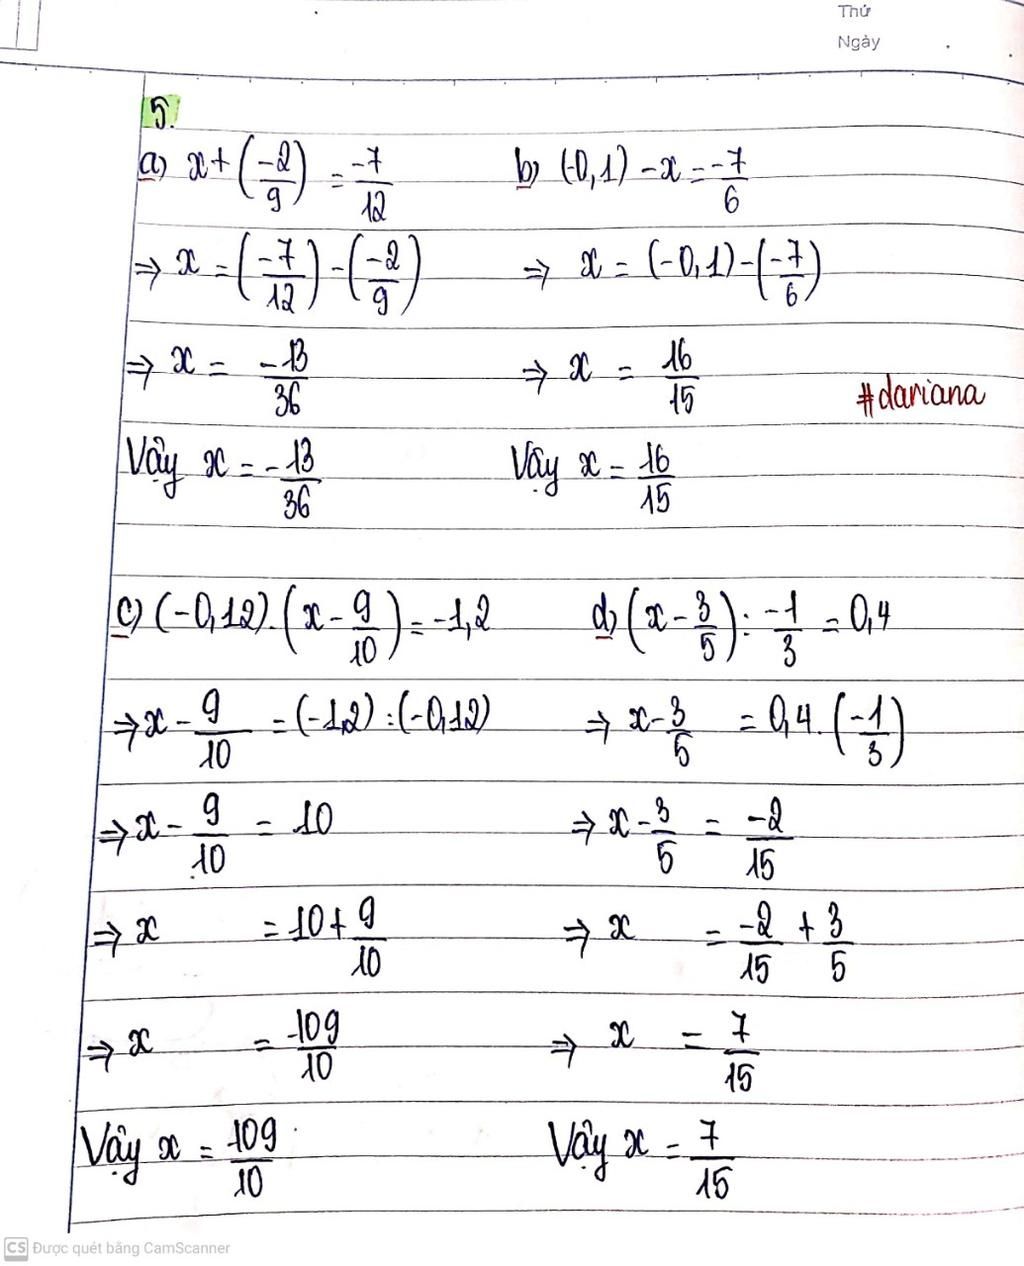 Thứ
Ngày
5.
a) x + (-2/9) = -7/12
⇒ x = (-7/12) - (-2/9)
⇒ x = -13/36
Vậy x = -13/36
b) (-0,1) - x = -7/6
⇒ x = (-0,1) - (-7/6)
⇒ x = 16/15
Vậy x = 16/15
#dariana
c) (-0,12).(x - 9/10) = -1,2
⇒ x - 9/10 = (-1,2) : (-0,12)
⇒ x - 9/10 = 10
⇒ x = 10 + 9/10
⇒ x = 109/10
Vậy x = 109/10
d) (x - 3/5) : -1/3 = 0,4
⇒ x - 3/5 = 0,4 . (-1/3)
⇒ x - 3/5 = -2/15
⇒ x = -2/15 + 3/5
⇒ x = 7/15
Vậy x = 7/15
CS Được quét bằng CamScanner